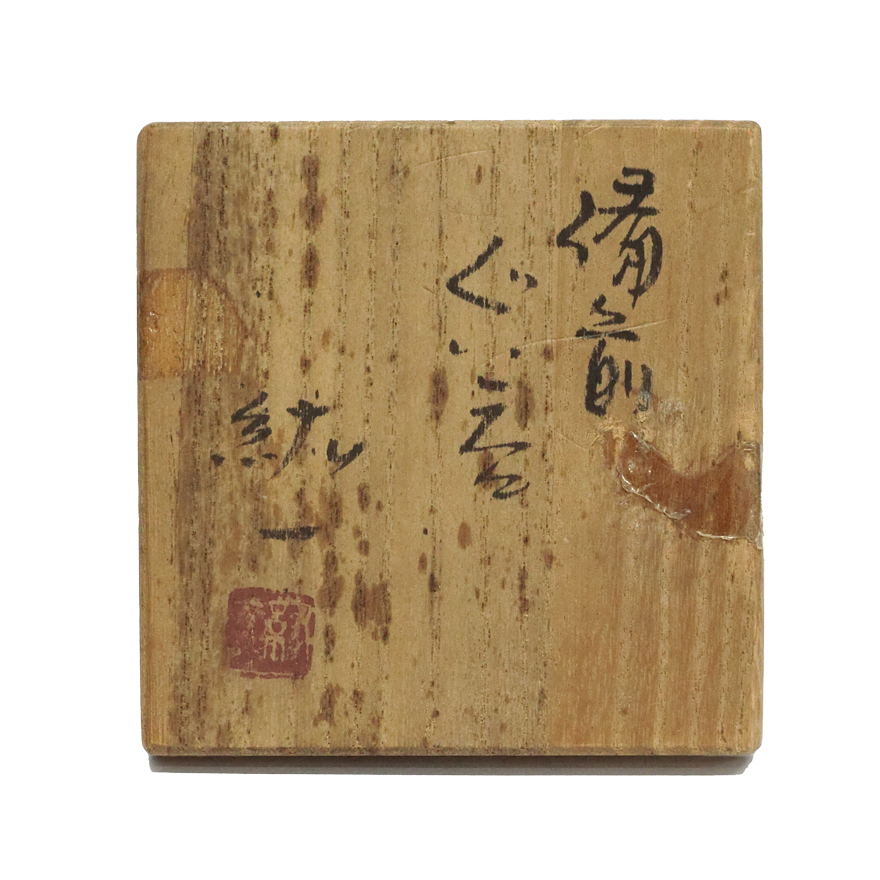 備前
ぐい呑
紘一